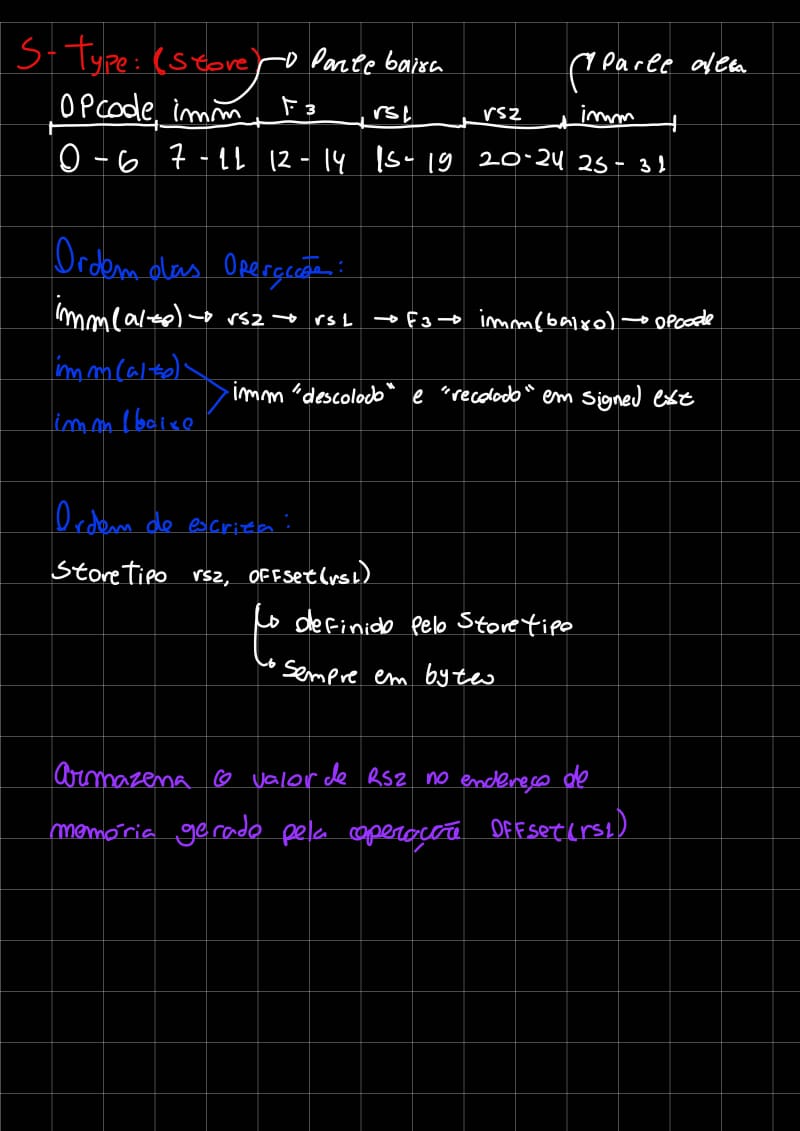 S-Type: (Store) → Parte baixa Parte alta
OPcode imm F3 rs1 rs2 imm
0-6 7-11 12-14 15-19 20-24 25-31
Ordem das Operação:
imm(alto) → rs2 → rs1 → F3 → imm(baixo) → OPcode
imm(alto)
imm "descolado" e "recolado" em signed ext
imm(baixo
Ordem de escrita:
StoreTipo rs2, OFFset(rs1)
↳ definido pelo Storetipo
↳ sempre em bytes
armazena o valor de RS2 no endereço de
memória gerado pela operação OFFset(rs1)